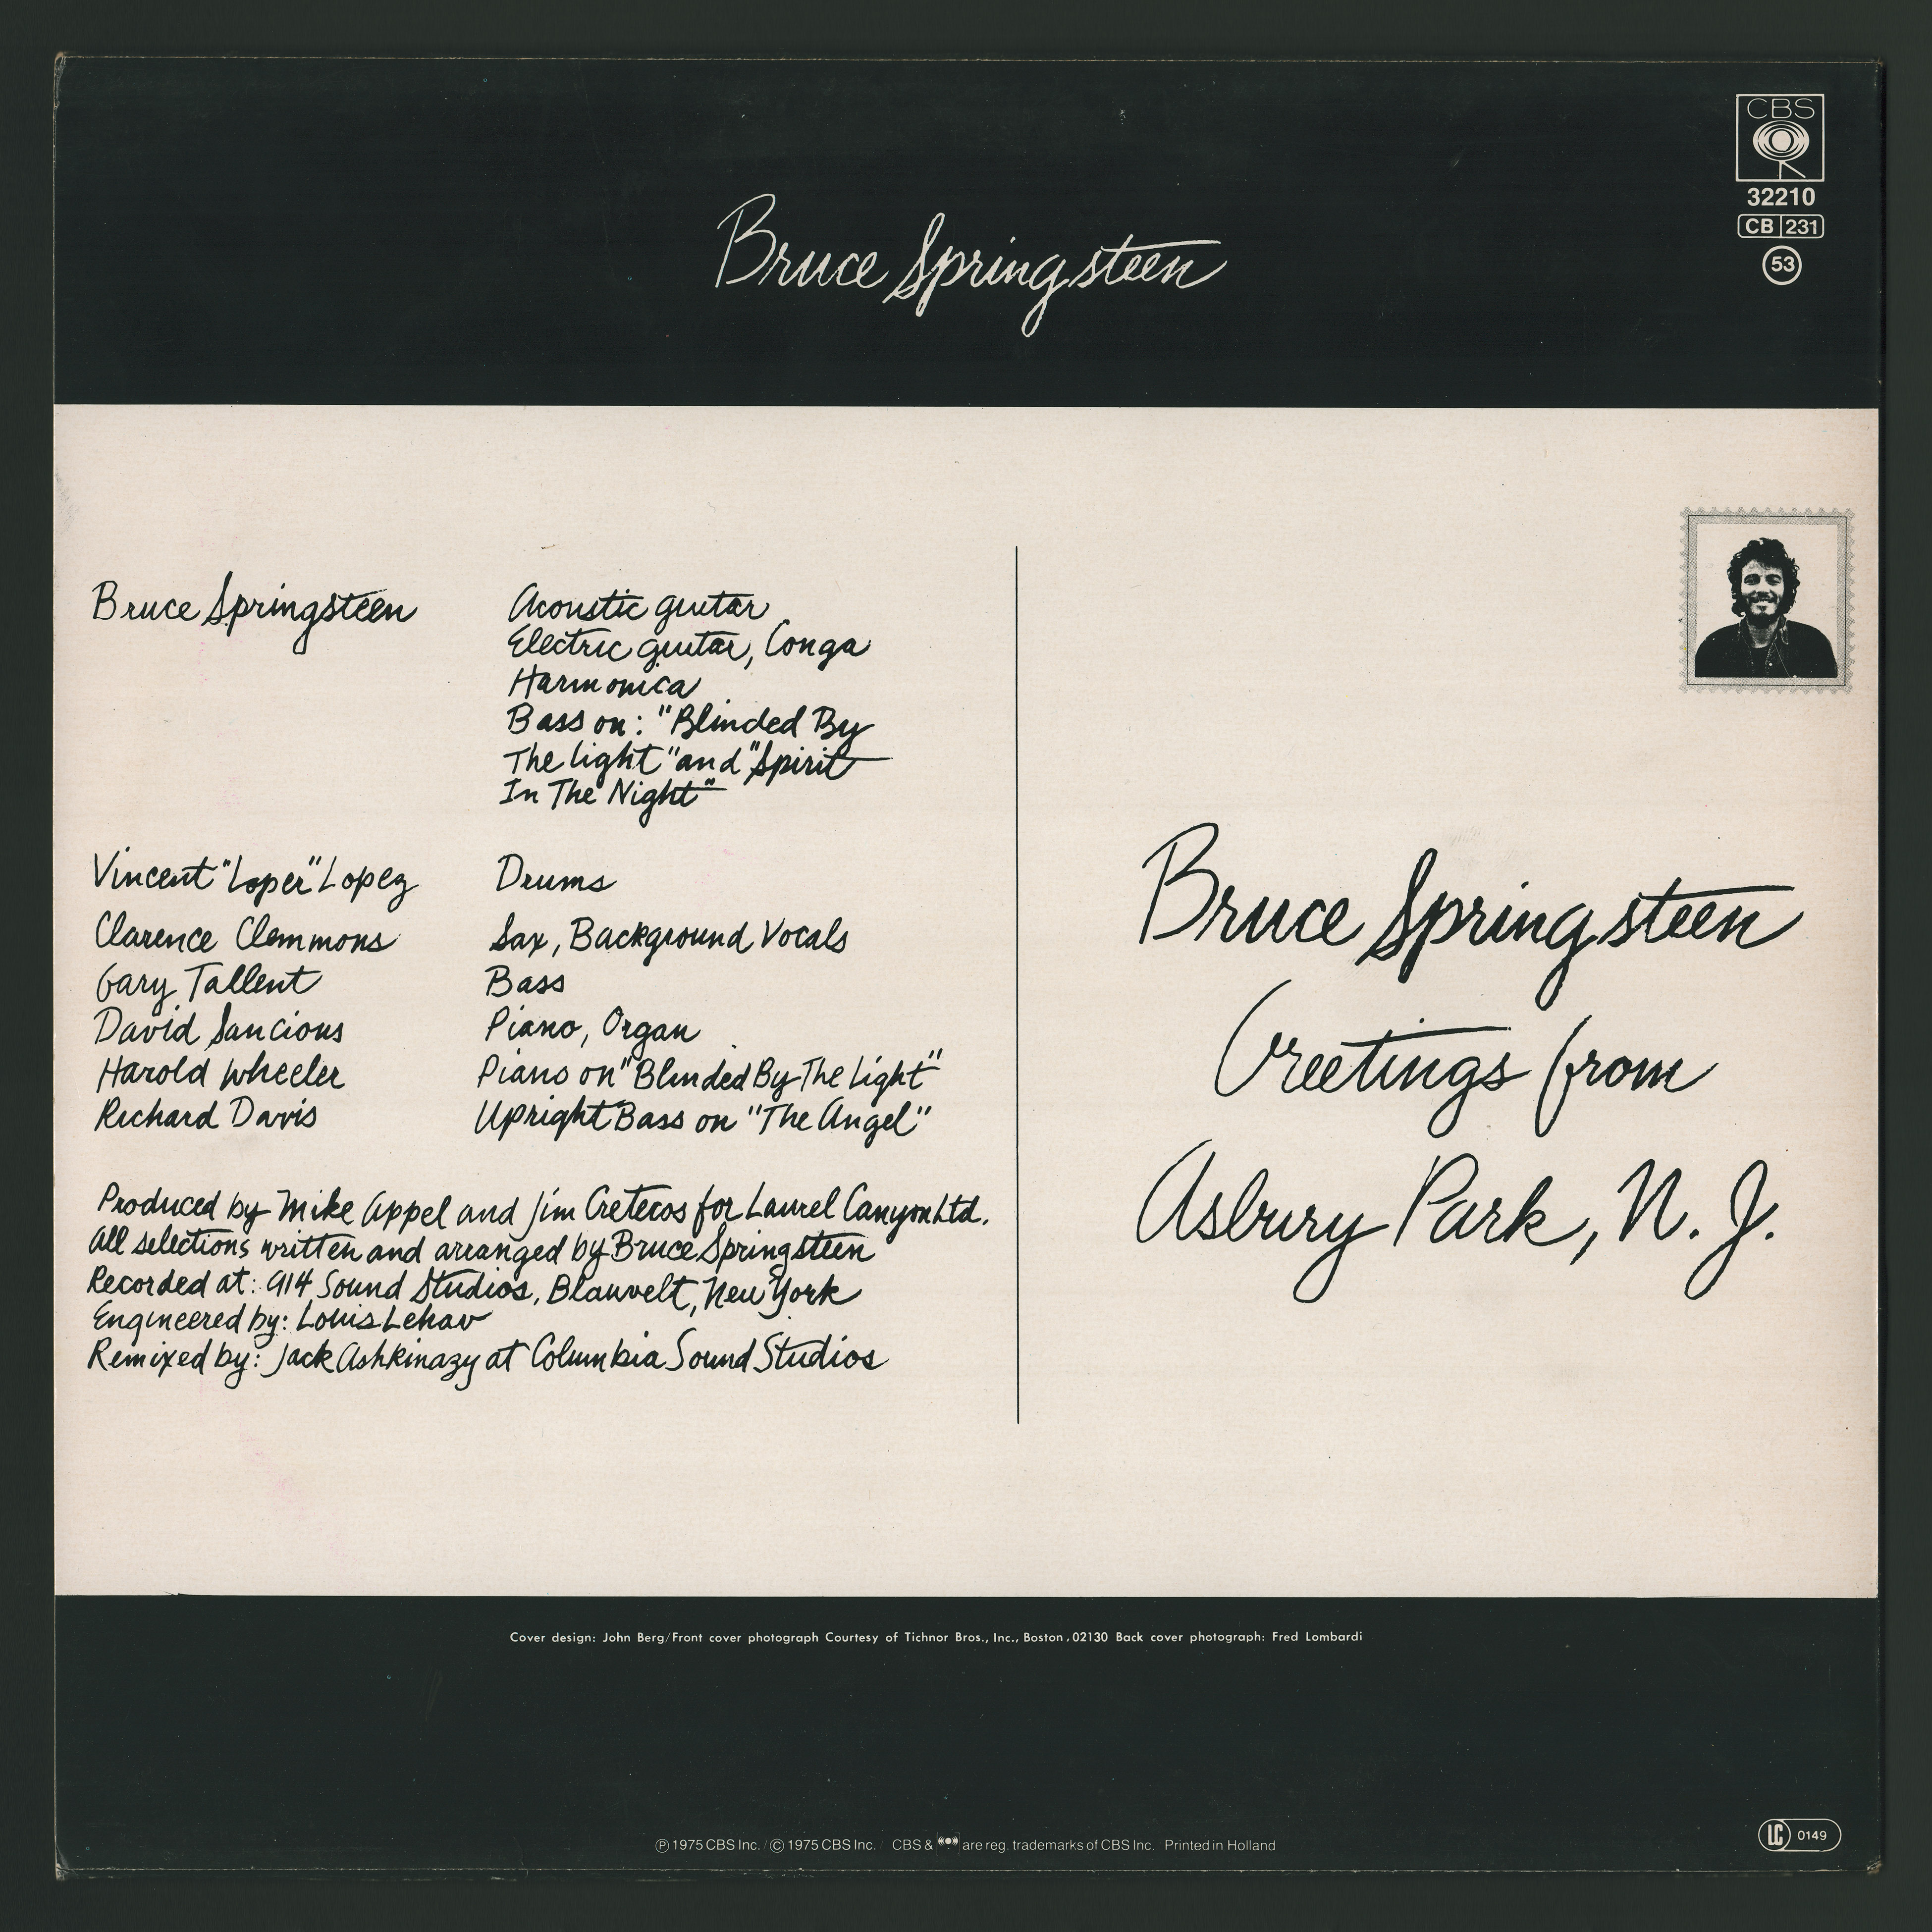 CBS
32210
CB 231
53
Bruce Springsteen
Bruce Springsteen Acoustic guitar
Electric guitar, Conga
Harmonica
Bass on: "Blinded By
The light" and "Spirit
In The Night"
Vincent "Loper" Lopez Drums
Clarence Clemmons Sax, Background Vocals
Gary Tallent Bass
David Sancious Piano, Organ
Harold Wheeler Piano on "Blinded By The Light"
Richard Davis Upright Bass on "The Angel"
Produced by Mike Appel and Jim Cretecos for Laurel Canyon Ltd.
All selections written and arranged by Bruce Springsteen
Recorded at: 914 Sound Studios, Blauvelt, New York
Engineered by: Louis Lehav
Remixed by: Jack Ashkinazy at Columbia Sound Studios
Bruce Springsteen
Greetings from
Asbury Park, N. J.
Cover design: John Berg/Front cover photograph Courtesy of Tichnor Bros., Inc., Boston, 02130 Back cover photograph: Fred Lombardi
Ⓟ 1975 CBS Inc. / © 1975 CBS Inc. / CBS & are reg. trademarks of CBS Inc. Printed in Holland
LC 0149